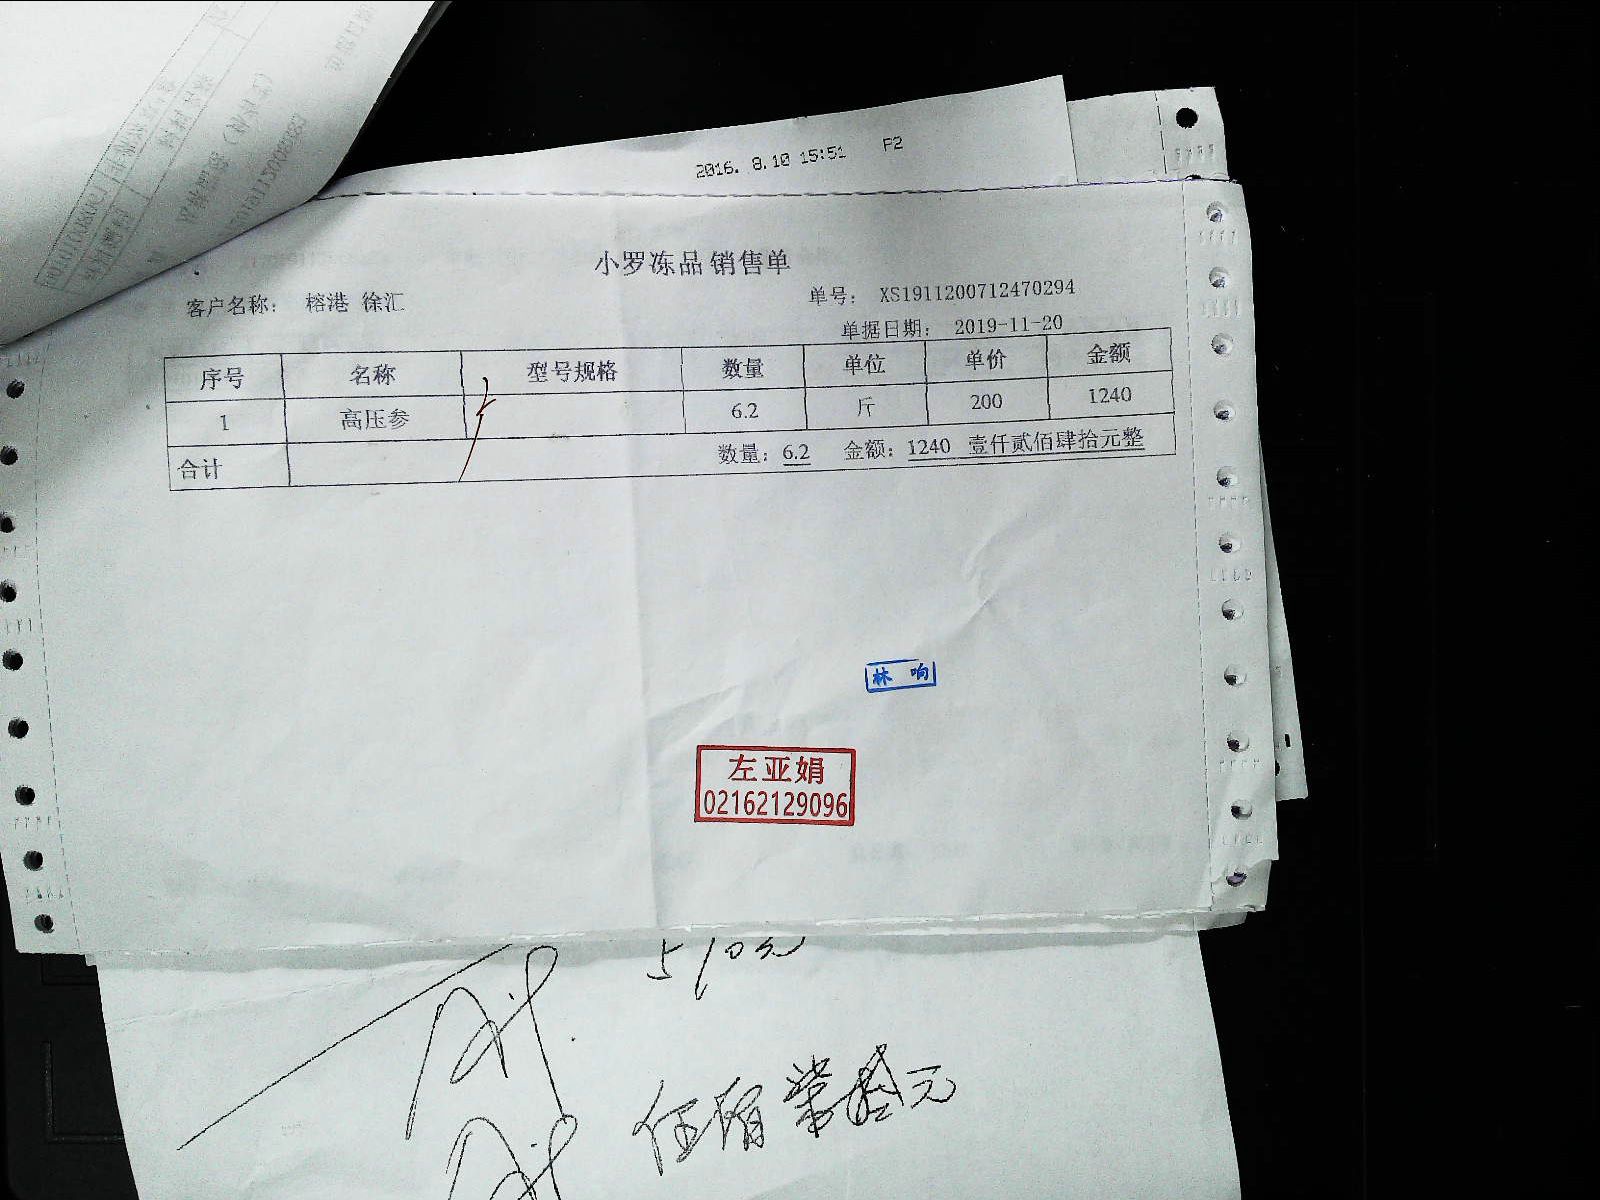 2016. 8.10 15:51 P2
小罗冻品 销售单
客户名称： 榕港 徐汇 单号： XS1911200712470294
单据日期： 2019-11-20
序号 名称 型号规格 数量 单位 单价 金额
1 高压参 6.2 斤 200 1240
合计 数量：6.2 金额：1240 壹仟贰佰肆拾元整
林 响
左亚娟
02162129096
510元